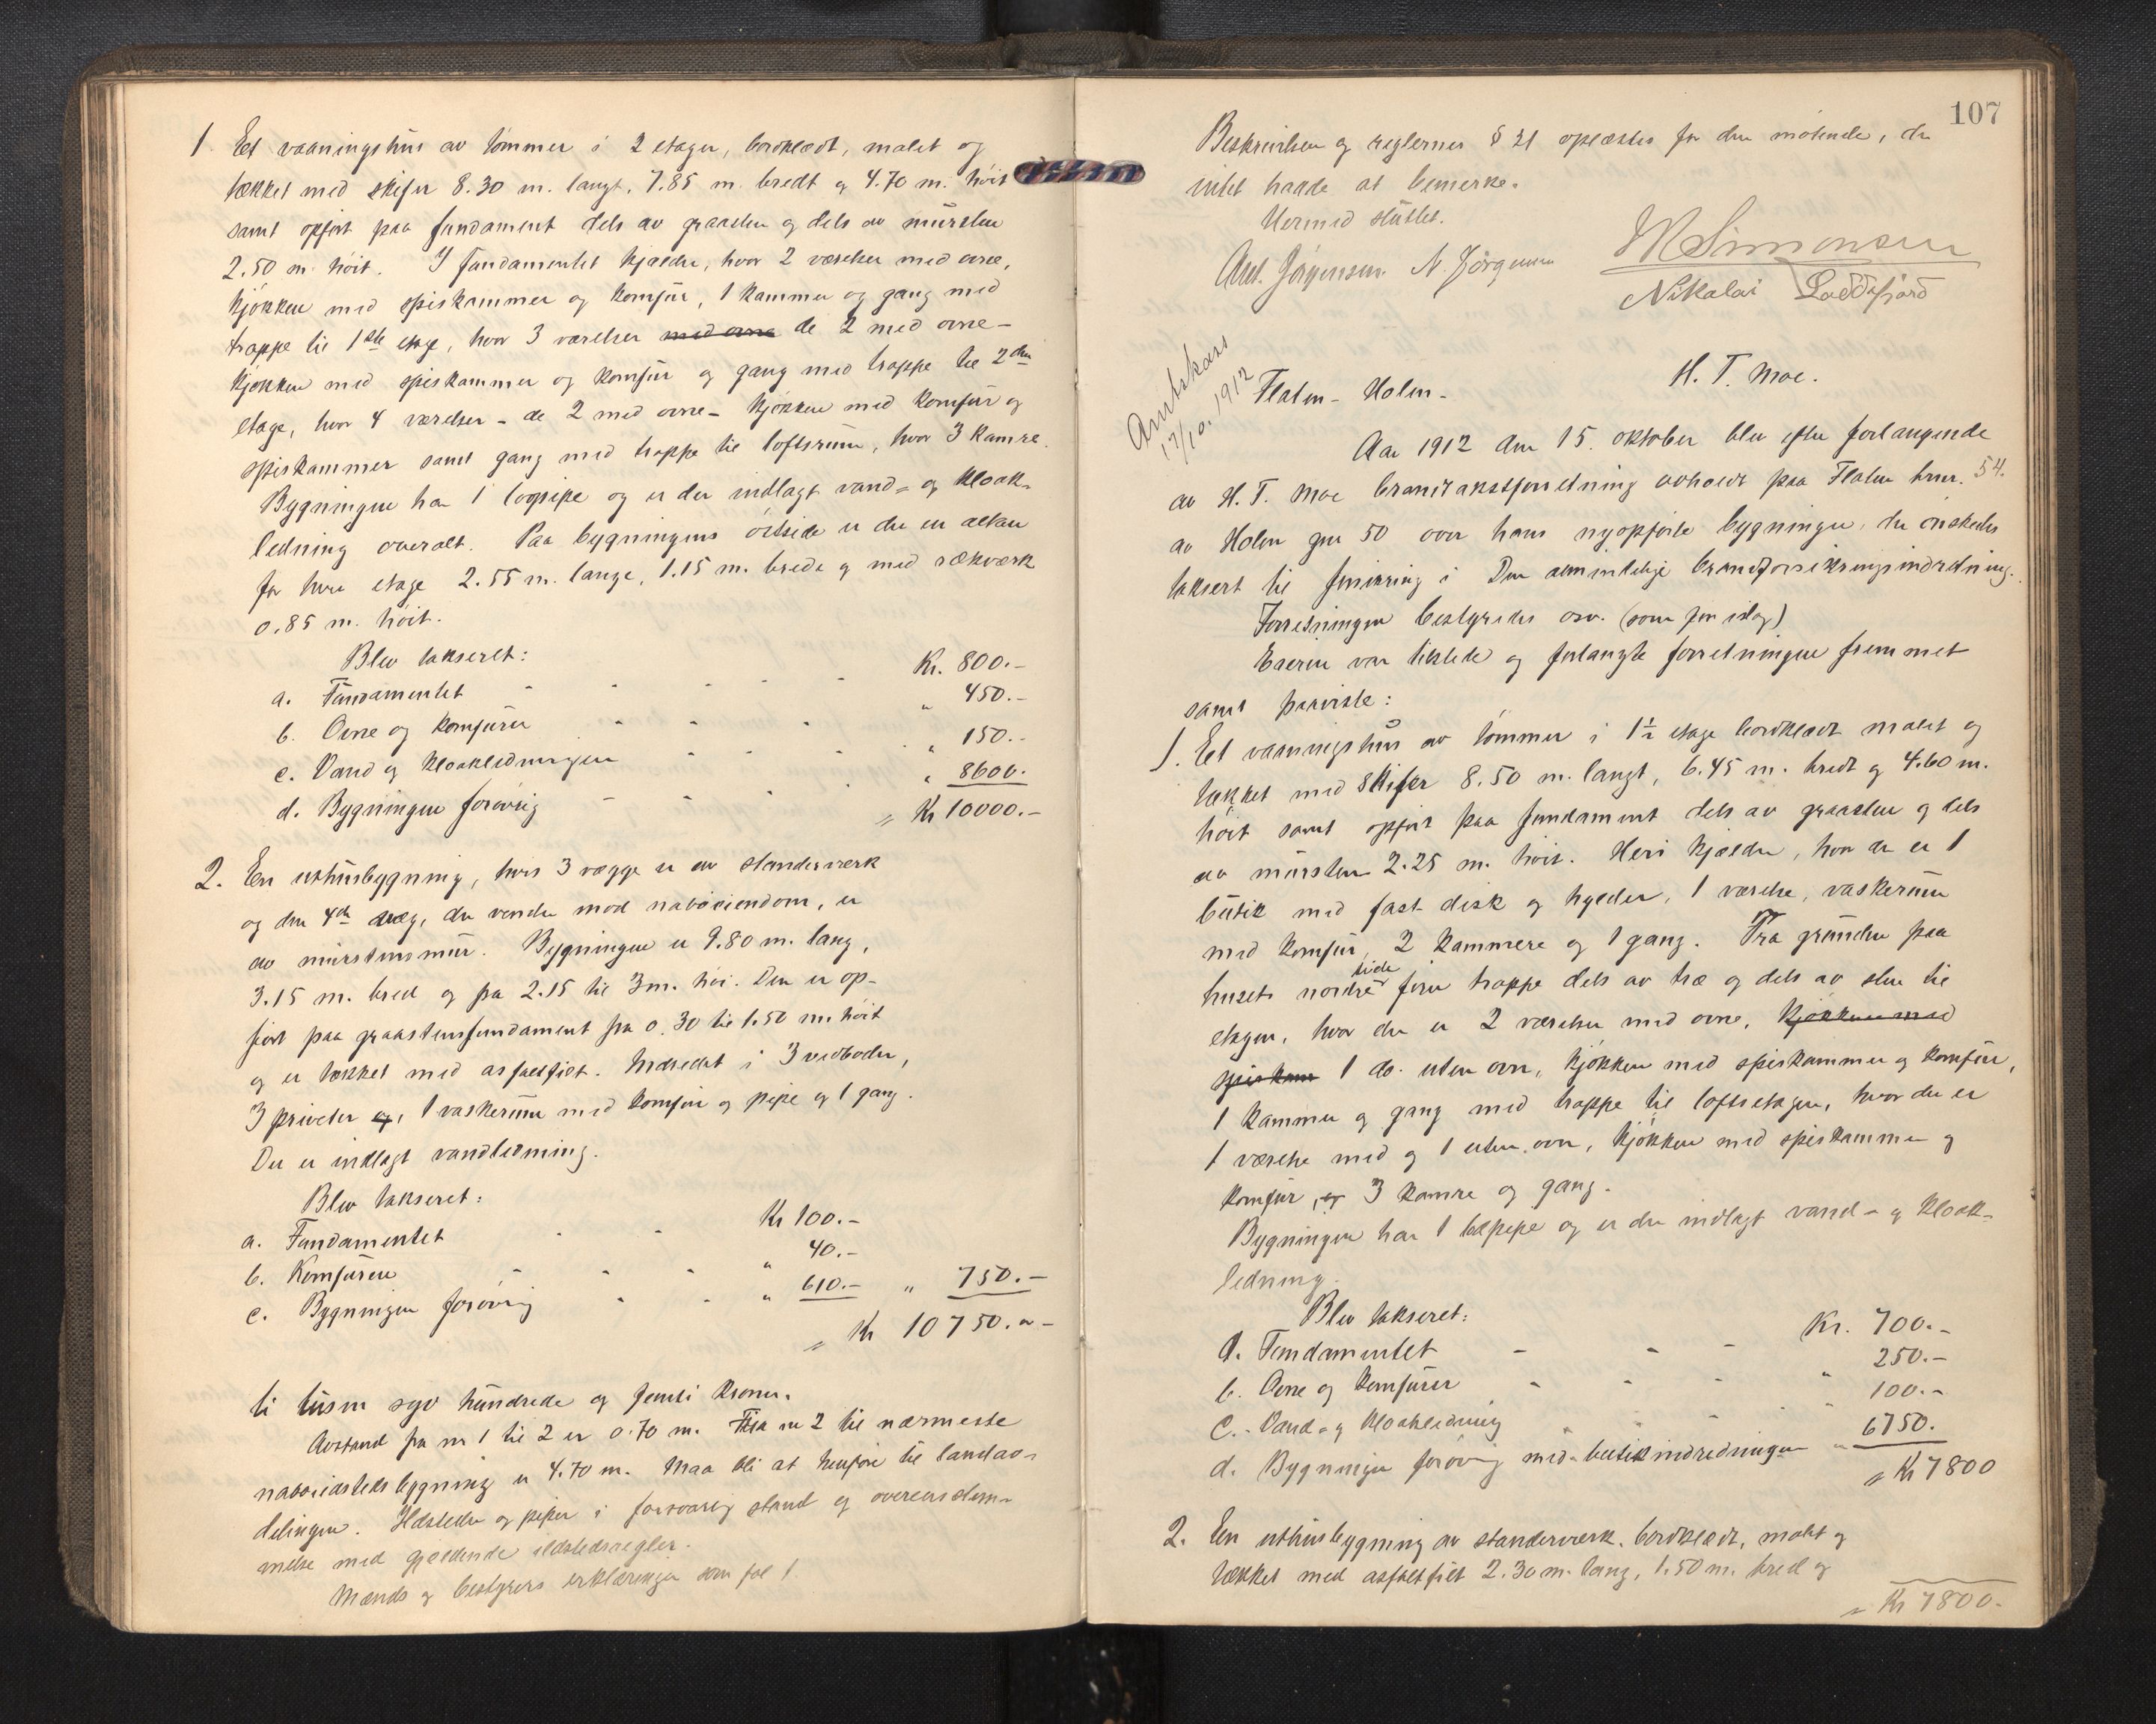 1. Et vaaningshus av tømmer i 2 etager, bordklædt, malet og
tækket med skifer 8.30 m. langt, 7.85 m. bredt og 4.70 m. høit
samt opført paa fundament dels av graasten og dels av mursten
2.50 m. høit. I fundamentet kjælder, hvor 2 værelser med ovne,
kjøkken med spiskammer og komfur, 1 kammer og gang med
trappe til 1ste etage, hvor 3 værelser med ovne de 2 med ovne -
kjøkken med spiskammer og komfur og gang med trappe til 2den
etage, hvor 4 værelser - de 2 med ovne - kjøkken med komfur og
spiskammer samt gang med trappe til loftsrum, hvor 3 kamre.
Bygningen har 1 løpipe og er der indlagt vand- og kloak-
ledning overalt. Paa bygningens østside er der en altan
for hver etage 2.55 m. lange, 1.15 m. brede og med rækværk
0.85 m. høit.
Blev takseret:
a. Fundamentet - - - - - Kr. 800.-
b. Ovne og komfurer - - - " 450.-
c. Vand og kloakledningen - - - " 150.-
d. Bygningen forøvrig - - - - " 8600.
" Kr 10000.-
2. En uthusbygning, hvis 3 vægge er av standerværk
og den 4de væg, der vender mod naboeiendom, er
av murstensmur. Bygningen er 9.80 m. lang,
3.15 m. bred og fra 2.15 til 3 m. høi. Den er op-
ført paa graastensfundament fra 0.30 til 1.50 m. høit
og er tækket med asfaltfilt. Indredet i 3 vedboder,
3 priveter og, 1 vaskerum med komfur og pipe og 1 gang.
Der er indlagt vandledning.
Blev takseret:
a. Fundamentet - - Kr 100.-
b. Komfuren - - - " 40.-
c. Bygningen forøvrig - - " 610.- " 750.-
" Kr 10750.-
ti tusen syv hundrede og femti kroner.
Avstand fra nr 1 til 2 er 0.70 m. Fra nr 2 til nærmeste
naboildsteds bygning er 4.70 m. Maa bli at henføre til landav-
delingen. Ildsteder og piper i forsvarlig stand og overensstem-
melse med gjældende ildstedsregler.
Mænds og bestyrers erklæringer som fol 1.
107
Beskrivelsen og reglernes § 21 oplæstes for den møtende, der
intet hadde at bemerke.
Hermed sluttet.
M Simonsen
Axel. Jørgensen. N. Jørgensen
Nikolai Loddefjord
Amtskars
17/10. 1912
Flaten - Holen -
H. T. Moe.
Aar 1912 den 15. oktober blev efter forlangende
av H. T. Moe brandtakstforretning avholdt paa Flaten brnr. 54.
av Holen gnr 50 over hans nyopførte bygninger, der ønskedes
taksert til forsikring i Den almindelige brandforsikringsindretning.
Forretningen bestyredes osv. (som før idag)
Eieren var tilstede og forlangte forretningen fremmet
samt paaviste:
1. Et vaaningshus av tømmer i 1½ etage bordklædt malet og
tækket med skifer 8.50 m. langt, 6.45 m. bredt og 4.60 m.
høit samt opført paa fundament dels av graasten og dels
av mursten 2.25 m. høit. Heri kjælder, hvor der er 1
butik med fast disk og hylder, 1 værelse, vaskerum
med komfur, 2 kammere og 1 gang. Fra grunden paa
husets nordre side fører trappe dels av træ og dels av sten til
etagen, hvor der er 2 værelser med ovne, kjøkken med
spiskam 1 do. uten ovn, kjøkken med spiskammer og komfur,
1 kammer og gang med trappe til loftsetagen, hvor der er
1 værelse med og 1 uten ovn, kjøkken med spiskammer og
komfur, og 3 kamre og gang.
Bygningen har 1 pipe og er der indlagt vand- og kloak-
ledning.
Blev takseret:
a. Fundamentet - - - Kr. 700.-
b. Ovne og komfurer - - - " 250.-
c. - Vand- og kloakledning " " " 100.-
d. Bygningen forøvrig med butikindredningen " 6750.
" Kr 7800
2. En uthusbygning av standerværk, bordklædt, malet og
tækket med asfaltfilt 2.30 m. lang, 1.50 m. bred og
" Kr 7800.-